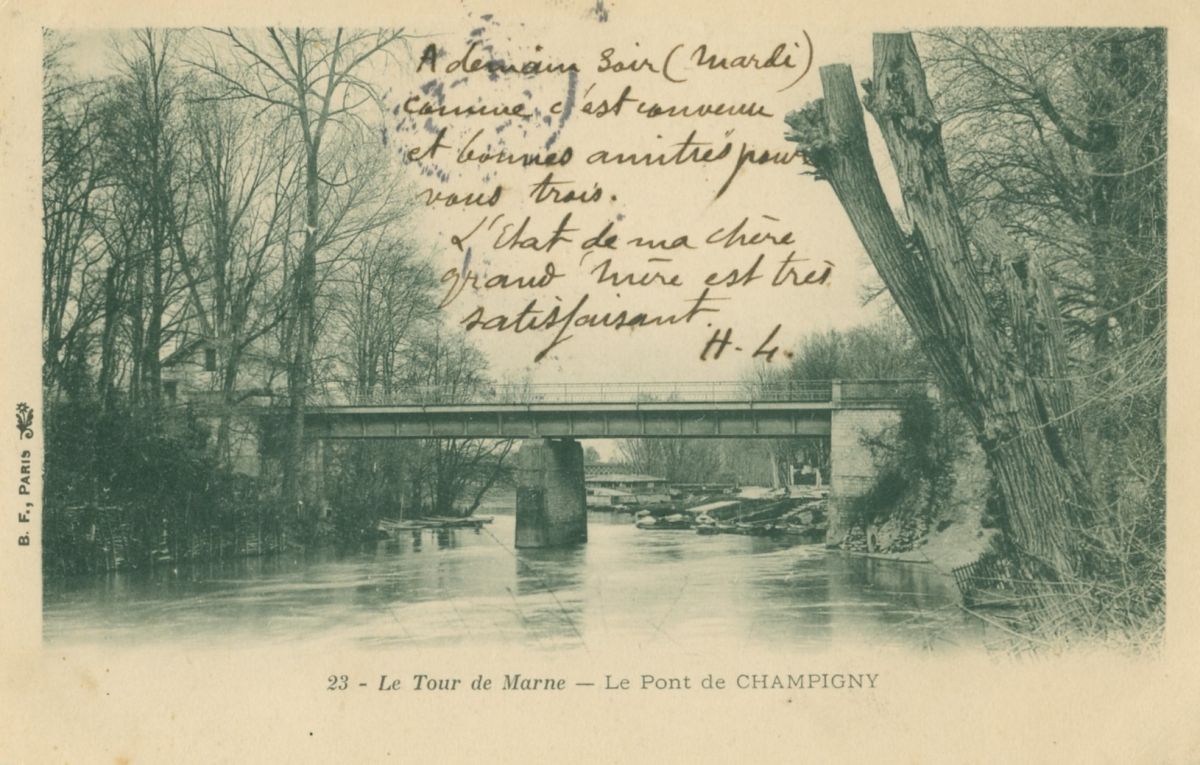 A demain Soir (Mardi)
comme c'est convenu
et bonnes amitiés pour
vous trois.
L'Etat de ma chère
grand'mère est très
satisfaisant.
H. L.
B. F., PARIS
23 - Le Tour de Marne — Le Pont de CHAMPIGNY